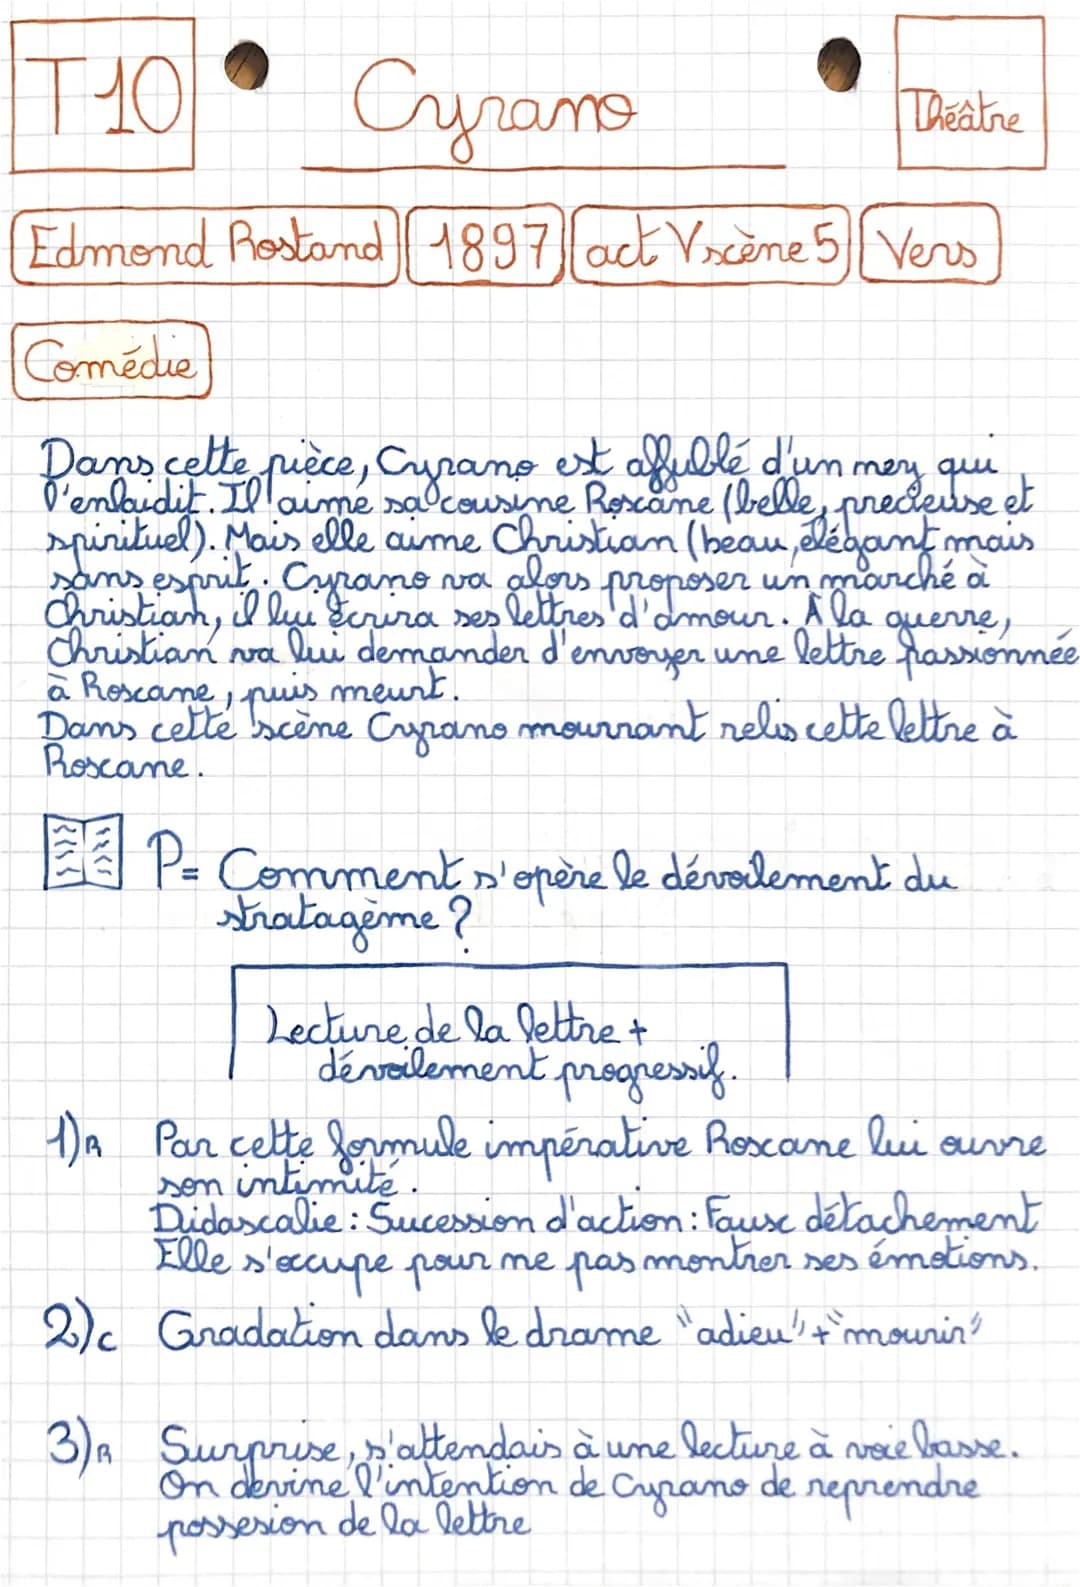 T10
Cyrano
Théâtre
Edmond Rostand
1897
act V scène 5
Vers
Comédie
Dans cette pièce, Cyrano est affublé d'un nez qui
l'enlaidit. Il aime sa cousine Roxane (belle, precieuse et
spirituel). Mais elle aime Christian (beau, élégant mais
sans esprit. Cyrano va alors proposer un marché à
Christian, il lui écrira ses lettres d'amour. À la guerre,
Christian va lui demander d'envoyer une lettre passionnée
à Roxane, puis meurt.
Dans cette scène Cyrano mourrant relis cette lettre à
Roxane.
P= Comment s'opère le dévoilement du
stratagème ?
Lecture de la lettre +
dévoilement progressif.
1)R Par cette formule impérative Roxane lui ouvre
son intimité.
Didascalie : Sucession d'action : Faux détachement
Elle s'occupe pour ne pas montrer ses émotions.
2)C Gradation dans le drame "adieu" + "mourir"
3)R Surprise, s'attendais à une lecture à voie basse.
On devine l'intention de Cyrano de reprendre
possesion de la lettre